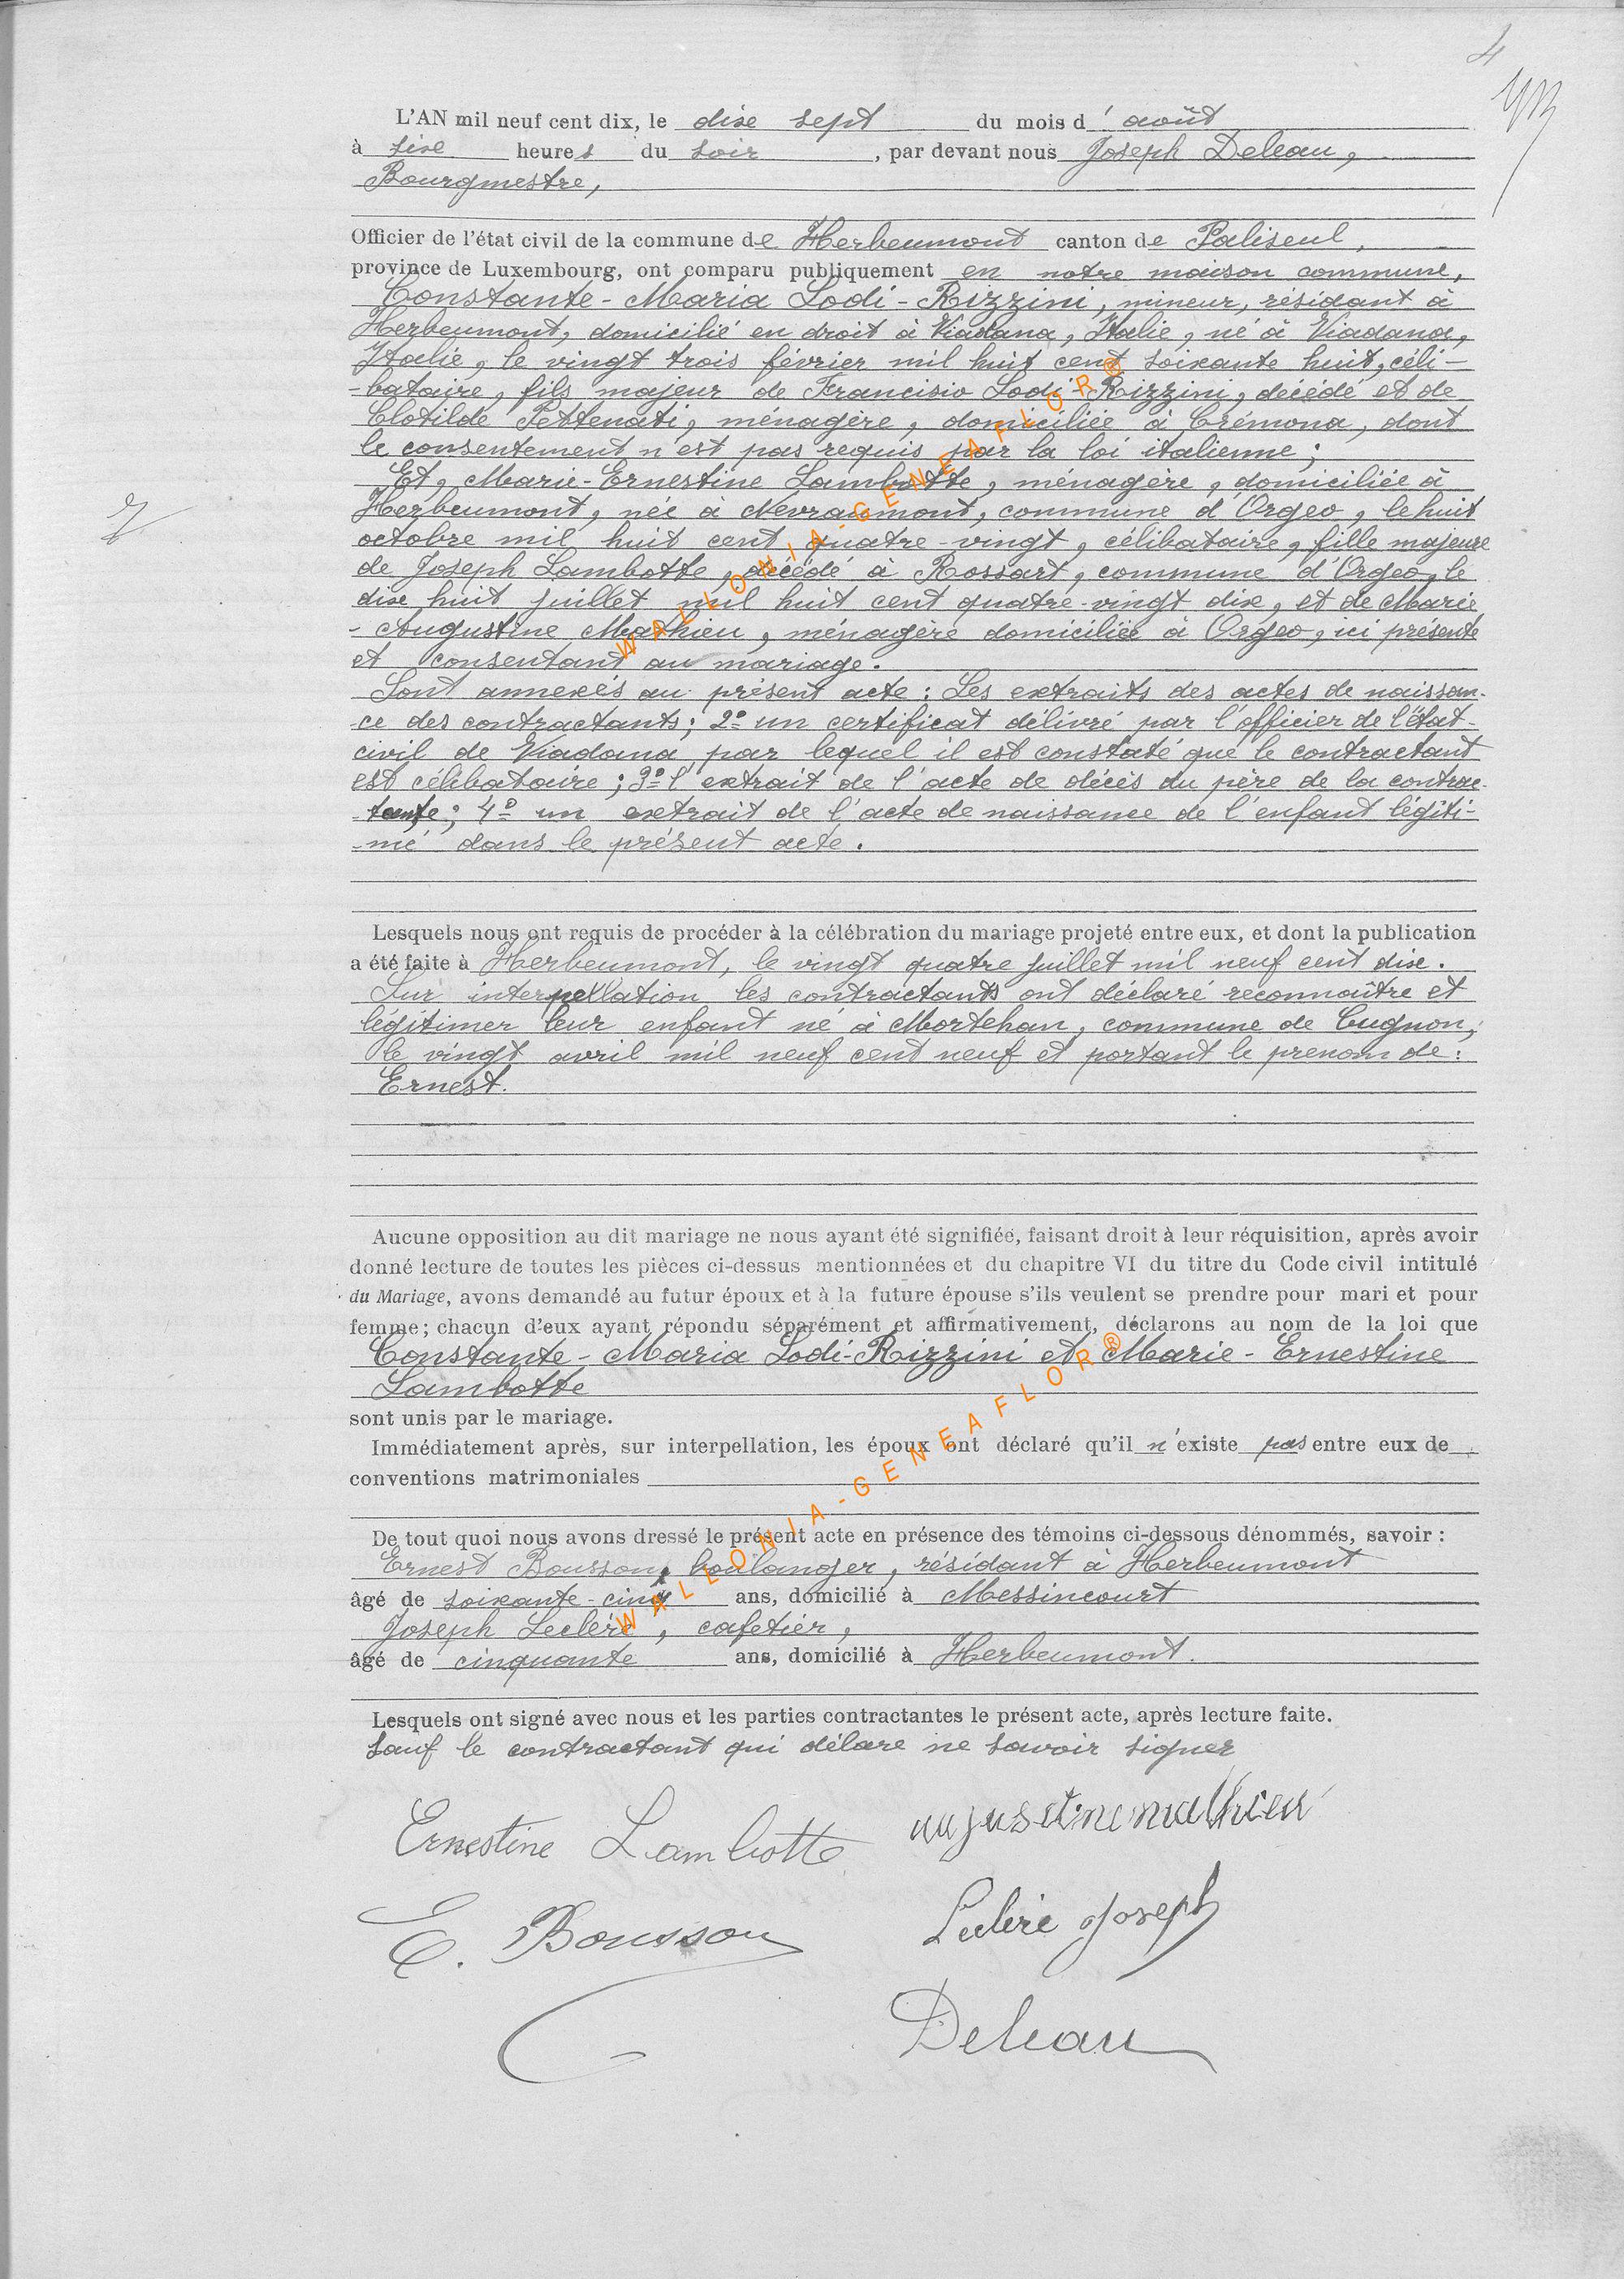 4
L'AN mil neuf cent dix, le dixe sept du mois d'août
à sixe heures du soir, par devant nous Joseph Deleau,
Bourgmestre,
Officier de l'état civil de la commune de Herbeumont canton de Paliseul,
province de Luxembourg, ont comparu publiquement en notre maison commune,
Constante-Maria Lodi-Rizzini, mineur, résidant à
Herbeumont, domicilié en droit à Viadana, Italie, né à Viadana,
Italie, le vingt trois février mil huit cent soixante huit, céli-
-bataire, fils majeur de Francisio Lodi-Rizzini, décédé et de
Clotilde Pettenati, ménagère, domiciliée à Crémona, dont
le consentement n'est pas requis par la loi italienne;
Et, Marie-Ernestine Lambotte, ménagère, domiciliée à
Herbeumont, née à Nevraumont, commune d'Orgeo, le huit
octobre mil huit cent quatre-vingt, célibataire, fille majeure
de Joseph Lambotte, décédé à Rossart, commune d'Orgeo, le
dixe huit juillet mil huit cent quatre-vingt dixe, et de Marie
-Augustine Mathieu, ménagère domiciliée à Orgeo, ici présente
et consentant au mariage.
Sont annexés au présent acte: Les extraits des actes de naissan-
-ce des contractants; 2º un certificat délivré par l'officier de l'état-
civil de Viadana par lequel il est constaté que le contractant
est célibataire; 3º l'extrait de l'acte de décès du père de la contrac-
-tante; 4º un extrait de l'acte de naissance de l'enfant légiti-
-mé dans le présent acte.
Lesquels nous ont requis de procéder à la célébration du mariage projeté entre eux, et dont la publication
a été faite à Herbeumont, le vingt quatre juillet mil neuf cent dixe.
Sur interpellation les contractants ont déclaré reconnaître et
légitimer leur enfant né à Mortehan, commune de Cugnon,
le vingt avril mil neuf cent neuf et portant le prenom de:
Ernest.
Aucune opposition au dit mariage ne nous ayant été signifiée, faisant droit à leur réquisition, après avoir
donné lecture de toutes les pièces ci-dessus mentionnées et du chapitre VI du titre du Code civil intitulé
du Mariage, avons demandé au futur époux et à la future épouse s'ils veulent se prendre pour mari et pour
femme; chacun d'eux ayant répondu séparément et affirmativement, déclarons au nom de la loi que
Constante-Maria Lodi-Rizzini et Marie-Ernestine
Lambotte
sont unis par le mariage.
Immédiatement après, sur interpellation, les époux ont déclaré qu'il n'existe pas entre eux de
conventions matrimoniales
De tout quoi nous avons dressé le présent acte en présence des témoins ci-dessous dénommés, savoir:
Ernest Bousson, boulanger, résidant à Herbeumont
âgé de soixante-cinq ans, domicilié à Messincourt
Joseph Lecléré, cafetier,
âgé de cinquante ans, domicilié à Herbeumont.
Lesquels ont signé avec nous et les parties contractantes le présent acte, après lecture faite.
sauf le contractant qui délare ne savoir signer
Ernestine Lambotte augustine mathieu
E. Bousson Leclère Joseph
Deleau
WALLONIA-GENEAFLOR®
WALLONIA-GENEAFLOR®